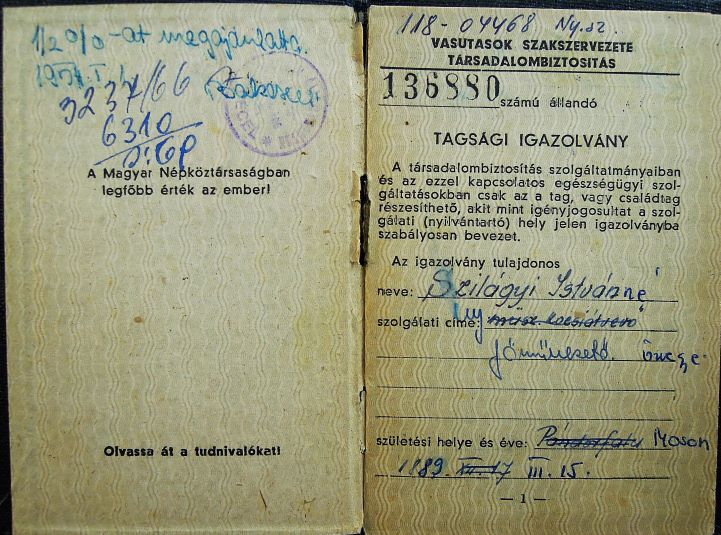 1/2 0/0-át megajánlatta.
1954. I. 1
3237/66
6310
A Magyar Népköztársaságban
legfőbb érték az ember!
Olvassa át a tudnivalókat!
118-04468 Ny.sz.
VASUTASOK SZAKSZERVEZETE
TÁRSADALOMBIZTOSITÁS
136880 számú állandó
TAGSÁGI IGAZOLVÁNY
A társadalombiztosítás szolgáltatmányaiban
és az ezzel kapcsolatos egészségügyi szol-
gáltatásokban csak az a tag, vagy családtag
részesíthető, akit mint igényjogosultat a szol-
gálati (nyilvántartó) hely jelen igazolványba
szabályosan bevezet.
Az igazolvány tulajdonos
neve: Szilágyi Istvánné
szolgálati címe: ny műsz. kocsiátvevő
főművezető özvegye
születési helye és éve: Pándorfalu Moson
1889 XII. 17 III. 15.
— 1 —